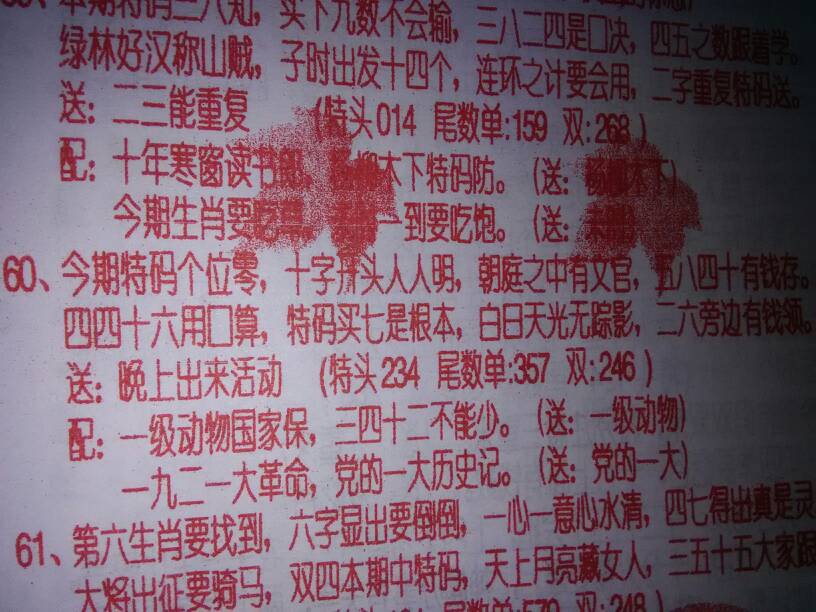 本期特码三八知，买下九数不会输，三八二四是□决，四五之数跟着学。
绿林好汉称山贼，子时出发十四个，连环之计要会用，二字重复特码送。
送：二三能重复 (特头014 尾数单:159 双:268)
配：十年寒窗读书 木下特码防。(送： 木下)
今期生肖要 一到要吃饱。(送：
60、今期特码个位零，十字 头人人明，朝庭之中有文官，五八四十有钱存。
四四十六用□算，特码买七是根本，白日天光无踪影，二六旁边有钱领。
送：晚上出来活动 (特头234 尾数单:357 双:246)
配：一级动物国家保，三四十二不能少。(送：一级动物)
一九二一大革命，党的一大历史记。(送：党的一大)
61、第六生肖要找到，六字显出要倒倒，一心一意心水清，四七得出真是灵
大将出征要骑马，双四本期中特码，天上月亮藏女人，三五十五大家跟